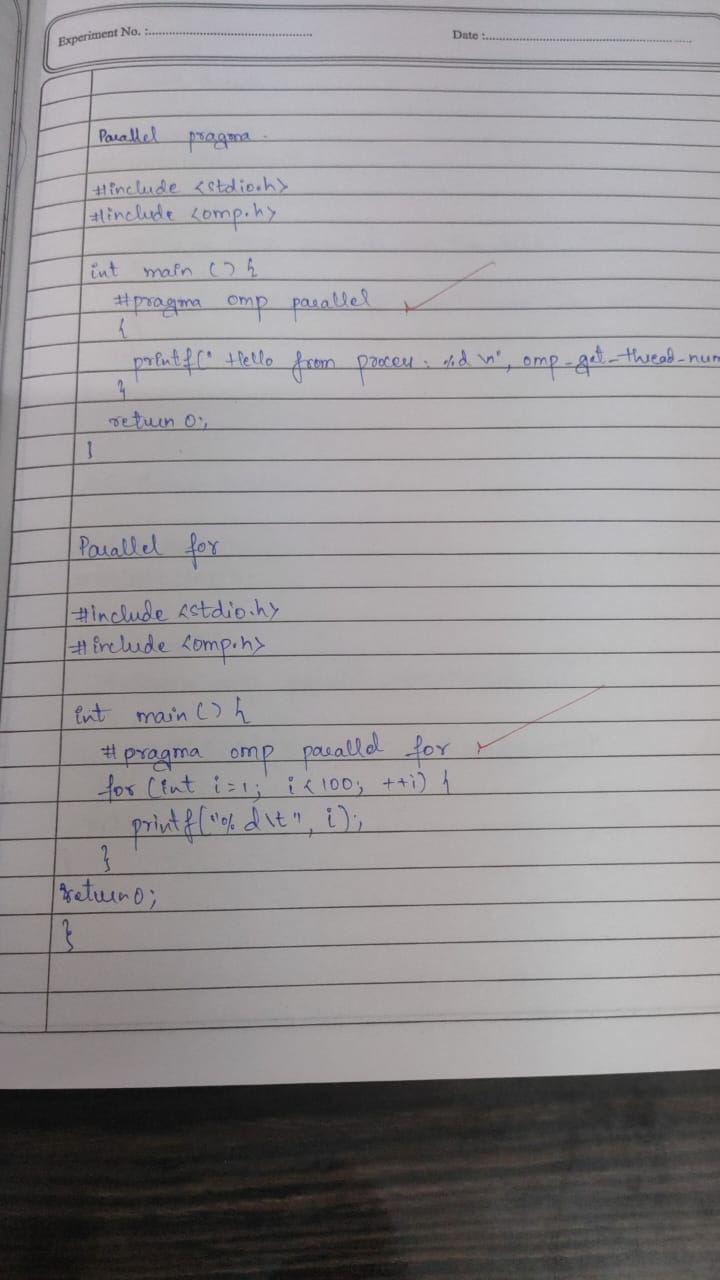 Experiment No. :
Date :
Parallel pragma.
#include <stdio.h>
#include <omp.h>
int main () {
#pragma omp parallel
{
printf(" Hello from process : %d \n", omp-get-thread-num
}
return 0;
}
Parallel for
#include <stdio.h>
#include <omp.h>
int main () {
#pragma omp parallel for
for (int i=1; i<100; ++i) {
printf("%d\t", i);
}
return 0;
}